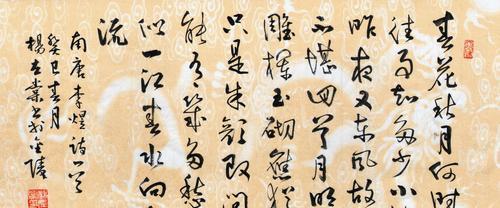 春花秋月何时
往事知多少小
昨夜又东风故
不堪回首月明
雕栏玉砌應猶
只是朱颜改问
能有几多愁
似一江春水向
流
南唐李煜诗一首
癸巳春月
楊 书于金陵